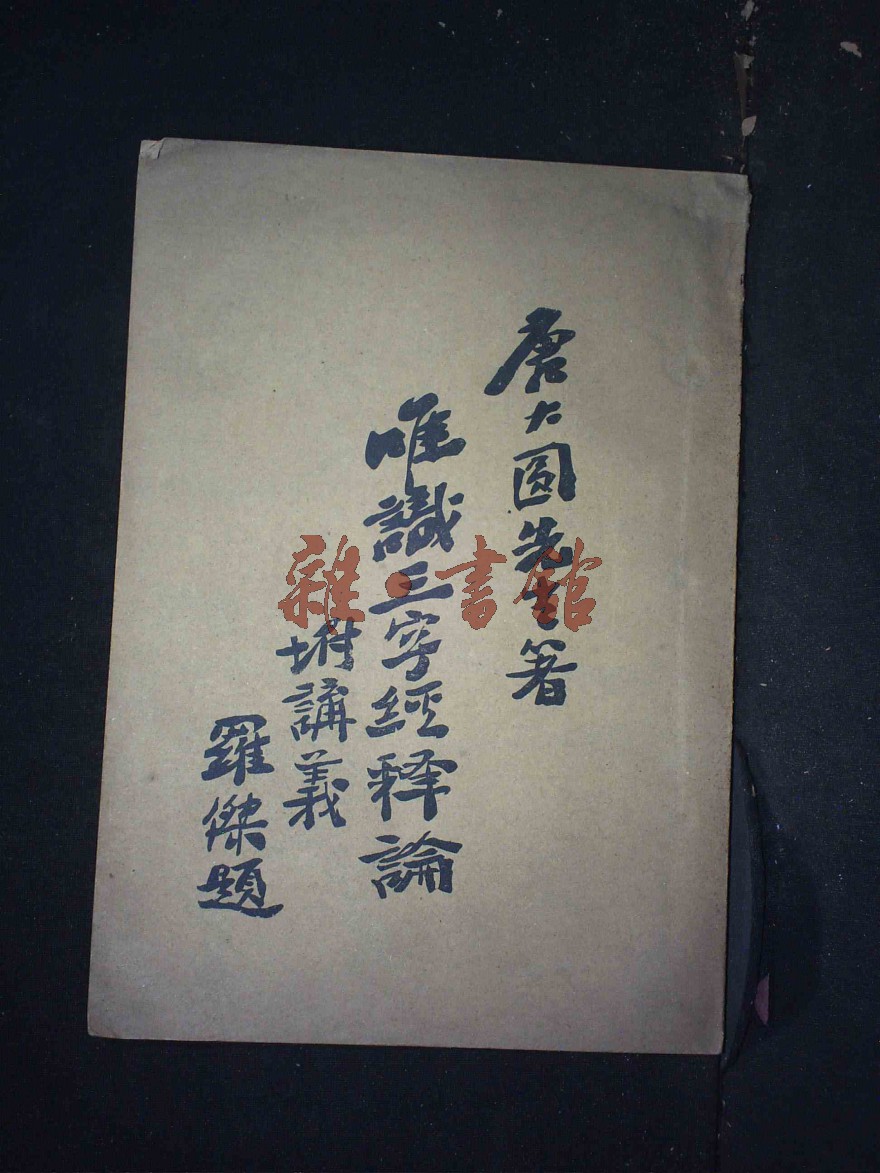 唐大圓先生著
唯識三字經釋論
坿講義
羅傑題
雜·書館